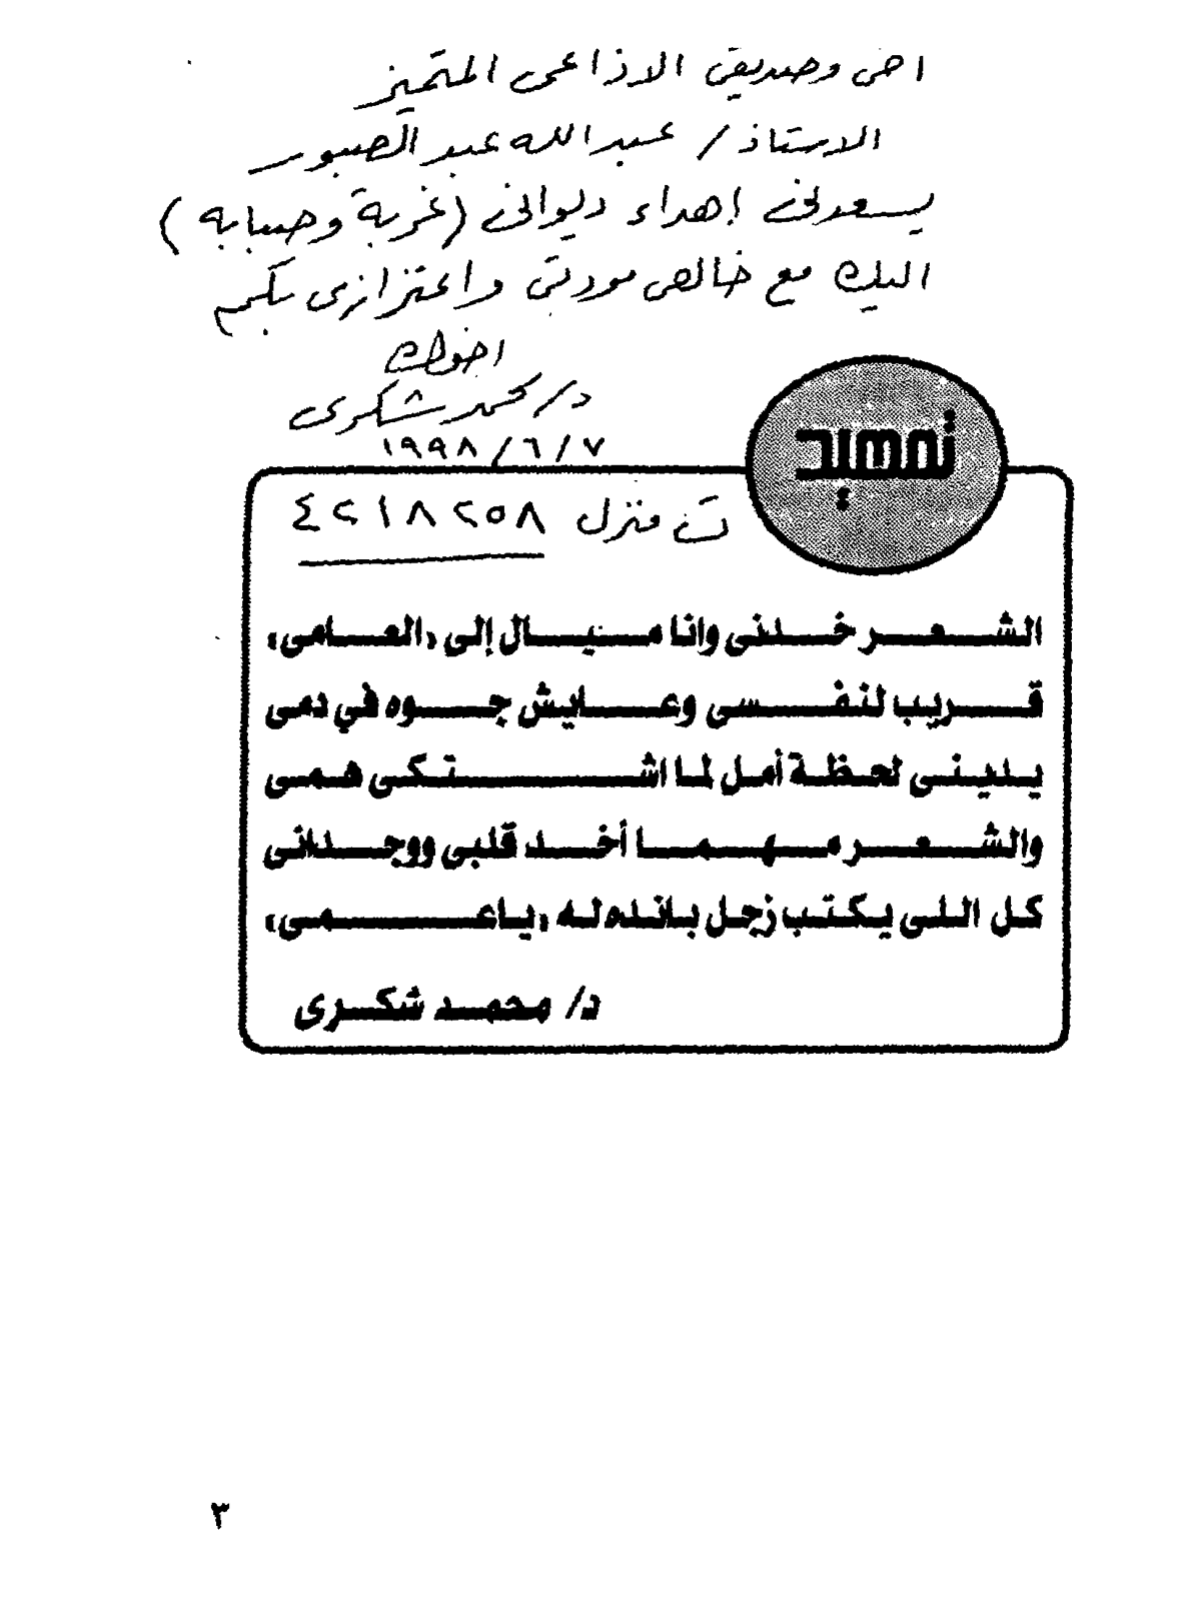 اخى وصديقى الاذاعى المتميز
الاستاذ / عبد الله عبد الصبور
يسعدنى إهداء ديوانى (غربة وصبابه)
اليك مع خالص مودتى واعتزازى بكم
اخوك
د/ محمد شكرى
١٩٩٨/٦/٧
تمهيد
ت منزل ٤٢١٨٢٥٨
الشعر خدنى وانا ميال إلى «العامى»
قريب لنفسى وعايش جوه في دمى
يدينى لحظة أمل لما اشتكى همى
والشعر مهما أخد قلبى ووجدانى
كل اللى يكتب زجل بانده له «ياعمى»
د/ محمد شكرى
٣